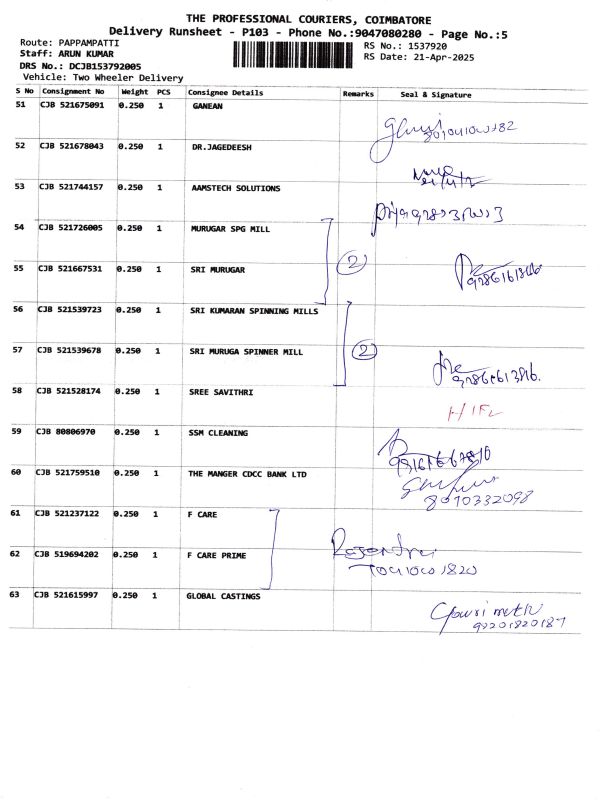 THE PROFESSIONAL COURIERS, COIMBATORE
Delivery Runsheet - P103 - Phone No.:9047080280 - Page No.:5
Route: PAPPAMPATTI
RS No.: 1537920
Staff: ARUN KUMAR
RS Date: 21-Apr-2025
DRS No.: DCJB153792005
Vehicle: Two Wheeler Delivery
S No Consignment No Weight PCS Consignee Details Remarks Seal & Signature
51 CJB 521675091 0.250 1 GANEAN
52 CJB 521678043 0.250 1 DR.JAGEDEESH
53 CJB 521744157 0.250 1 AAMSTECH SOLUTIONS
54 CJB 521726005 0.250 1 MURUGAR SPG MILL
2
55 CJB 521667531 0.250 1 SRI MURUGAR
56 CJB 521539723 0.250 1 SRI KUMARAN SPINNING MILLS
57 CJB 521539678 0.250 1 SRI MURUGA SPINNER MILL 2
58 CJB 521528174 0.250 1 SREE SAVITHRI
59 CJB 80806970 0.250 1 SSM CLEANING
60 CJB 521759510 0.250 1 THE MANGER CDCC BANK LTD
8070332098
61 CJB 521237122 0.250 1 F CARE
62 CJB 519694202 0.250 1 F CARE PRIME
63 CJB 521615997 0.250 1 GLOBAL CASTINGS